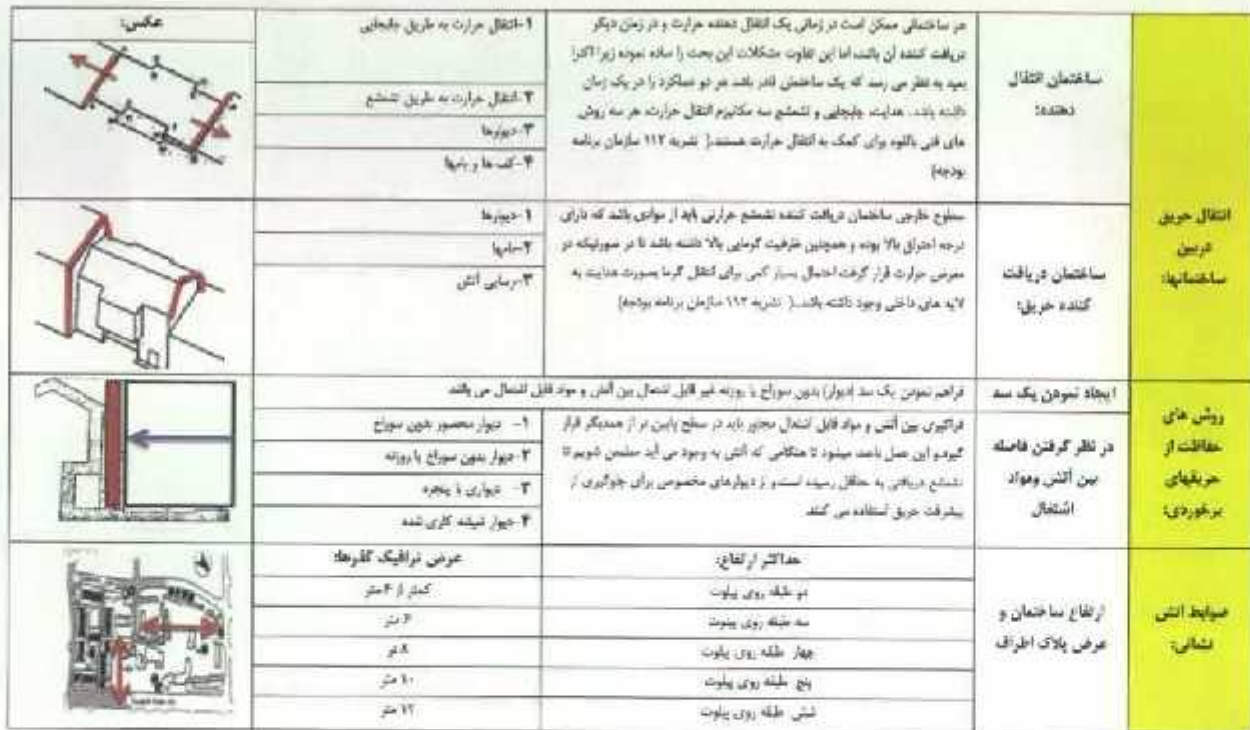 انتقال حریق
دربین
ساختمانها:
ساختمان انتقال
دهنده:
هر ساختمانی ممکن است در زمانی یک انتقال دهنده حرارت و در زمان دیگر
دریافت کننده آن باشد، اما این تفاوت مشکلات این بحث را ساده نموده زیرا اکثرا
بعید به نظر می رسد که یک ساختمان قادر باشد هر دو عملکرد را در یک زمان
داشته باشد. هدایت، جابجایی و تشعشع سه مکانیزم انتقال حرارت، هر سه روش
های فنی بالقوه برای کمک به انتقال حرارت هستند.( نشریه ۱۱۲ سازمان برنامه
بودجه)
۱-انتقال حرارت به طریق جابجایی
۲-انتقال حرارت به طریق تشعشع
۳-دیوارها
۴-کف ها و بامها
عکس:
ساختمان دریافت
کننده حریق:
سطوح خارجی ساختمان دریافت کننده تشعشع حرارتی باید از موادی باشد که دارای
درجه احتراق بالا بوده و همچنین ظرفیت گرمایی بالا داشته باشد تا در صورتیکه در
معرض حرارت قرار گرفت احتمال بسیار کمی برای انتقال گرما بصورت هدایت به
لایه های داخلی وجود داشته باشد.( نشریه ۱۱۲ سازمان برنامه بودجه)
۱-دیوارها
۲-بامها
۳-رسایی آتش
روش های
حفاظت از
حریقهای
برخوردی:
ایجاد نمودن یک سد
فراهم نمودن یک سد (دیوار) بدون سوراخ یا روزنه غیر قابل اشتعال بین آتش و مواد قابل اشتعال می باشد
در نظر گرفتن فاصله
بین آتش ومواد
اشتعال
فراگیری بین آتش و مواد قابل اشتعال مجاور باید در سطح پایین تر از همدیگر قرار
گیرد.و این عمل باعث میشود تا هنگامی که آتش به وجود می آید مطمئن شویم تا
تشعشع دریافتی به حداقل رسیده است.و از دیوارهای مخصوص برای جلوگیری از
پیشرفت حریق استفاده می کنند
۱- دیوار محصور بدون سوراخ
۲-دیوار بدون سوراخ یا روزنه
۳- دیواری با پنجره
۴-دیوار شیشه کاری شده
ضوابط اتش
نشانی:
ارتفاع ساختمان و
عرض پلاک اطراف
حداکثر ارتفاع:
عرض ترافیک گذرها:
دو طبقه روی پیلوت
کمتر از ۶ متر
سه طبقه روی پیلوت
۶ متر
چهار طبقه روی پیلوت
۸ متر
پنج طبقه روی پیلوت
۱۰ متر
شش طبقه روی پیلوت
۱۲ متر